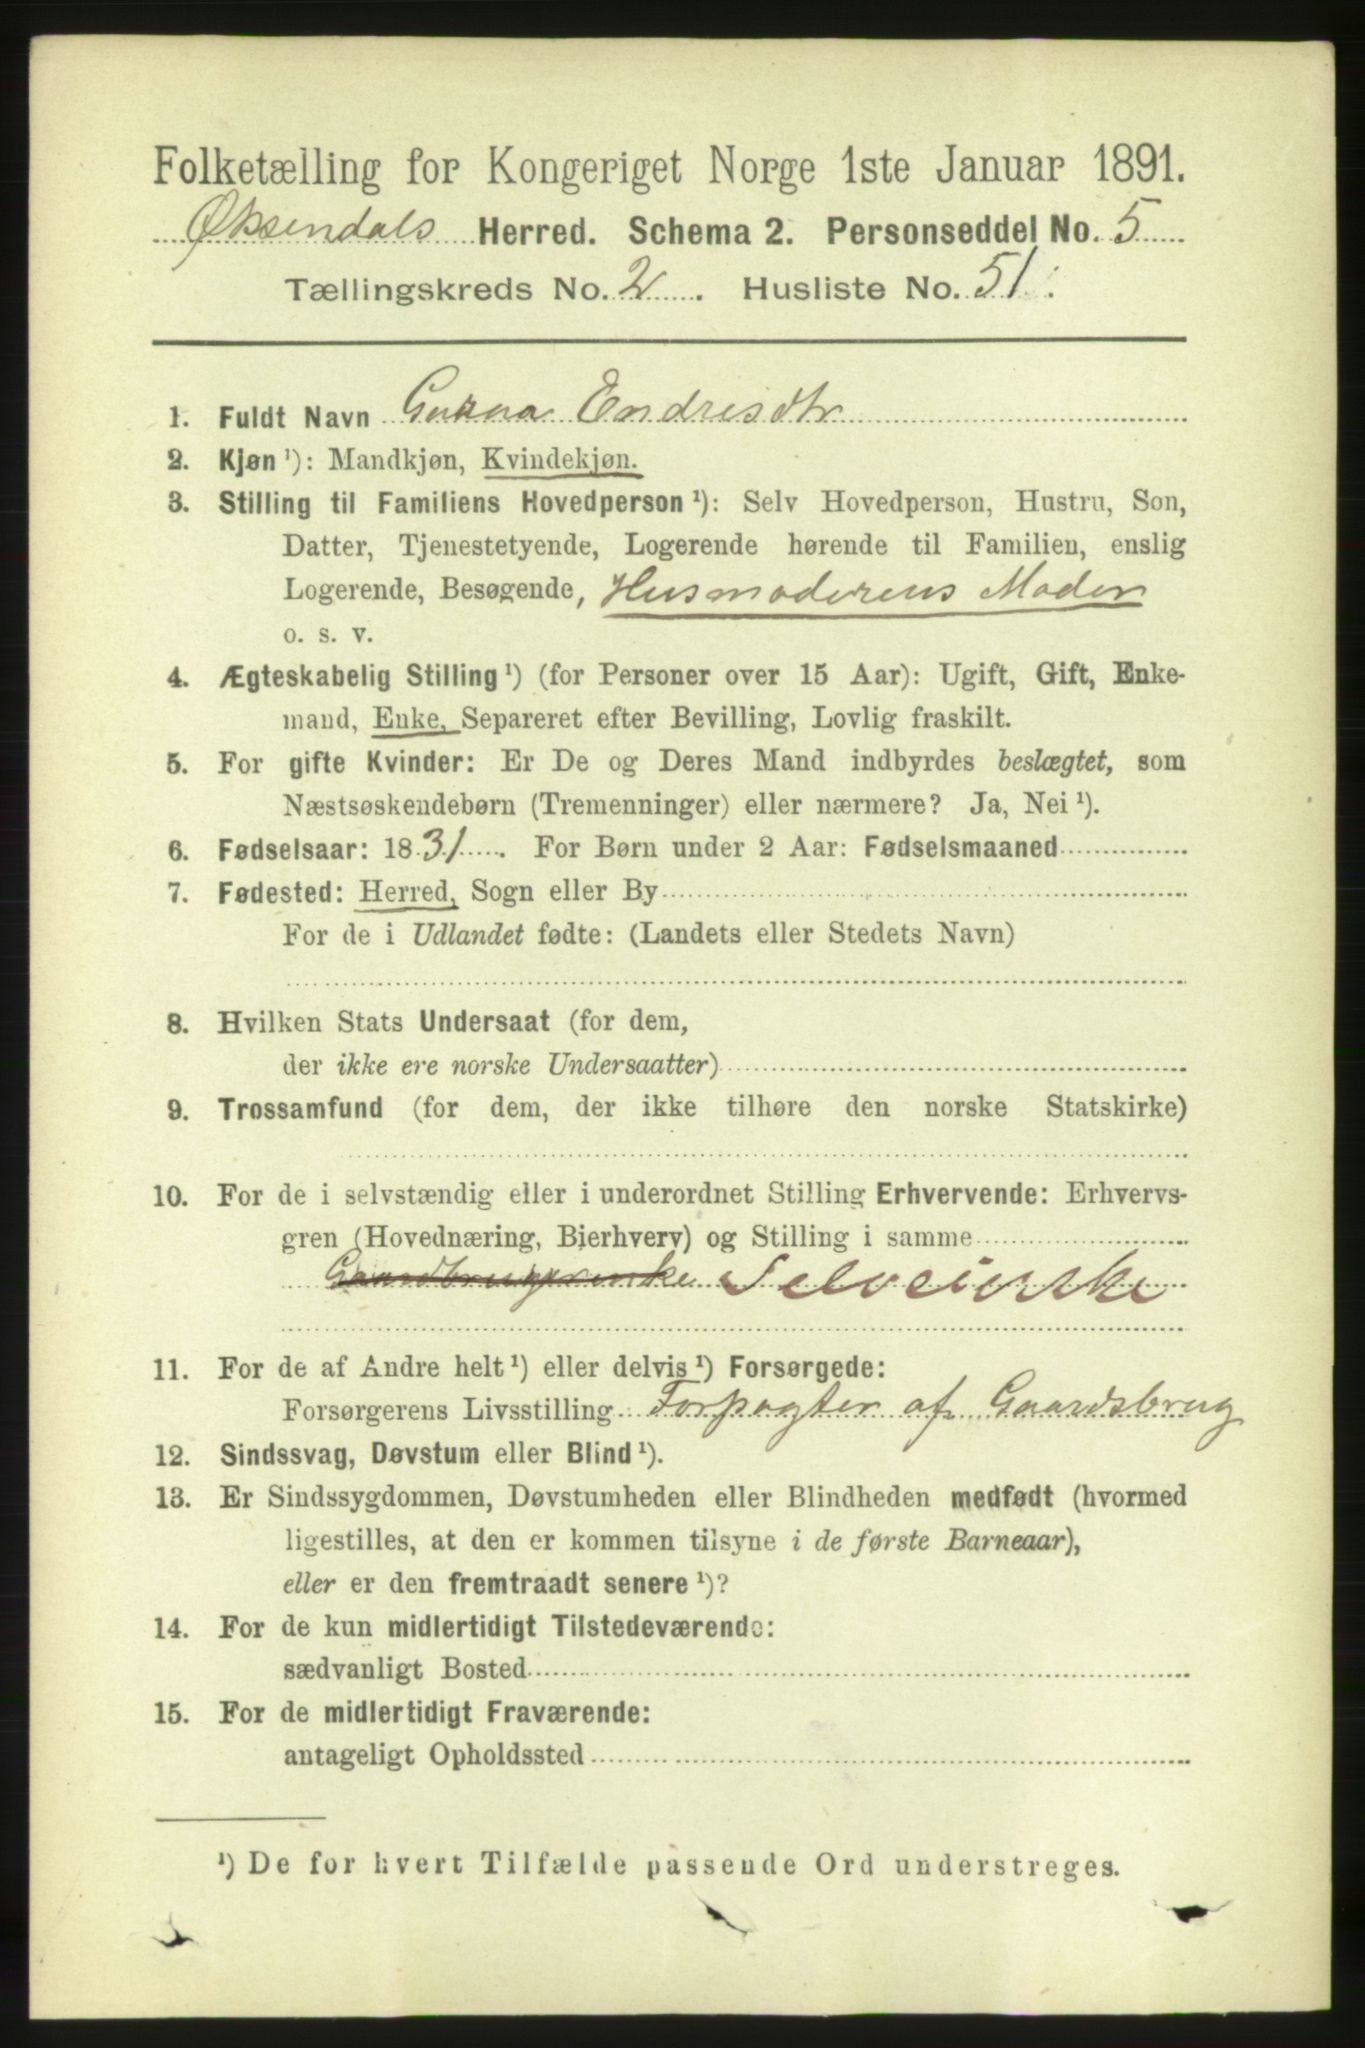 Folketælling for Kongeriget Norge 1ste Januar 1891.
Øksendals Herred. Schema 2. Personseddel No. 5
Tællingskreds No. 2. Husliste No. 51.
1. Fuldt Navn Endresdtr
2. Kjøn ¹): Mandkjøn, Kvindekjøn.
3. Stilling til Familiens Hovedperson ¹): Selv Hovedperson, Hustru, Søn,
Datter, Tjenestetyende, Logerende hørende til Familien, enslig
Logerende, Besøgende, Husmoderens Moder
o. s. v.
4. Ægteskabelig Stilling ¹) (for Personer over 15 Aar): Ugift, Gift, Enke-
mand, Enke, Separeret efter Bevilling, Lovlig fraskilt.
5. For gifte Kvinder: Er De og Deres Mand indbyrdes beslægtet, som
Næstsøskendebørn (Tremenninger) eller nærmere? Ja, Nei ¹).
6. Fødselsaar: 1831. For Børn under 2 Aar: Fødselsmaaned
7. Fødested: Herred, Sogn eller By
For de i Udlandet fødte: (Landets eller Stedets Navn)
8. Hvilken Stats Undersaat (for dem,
der ikke ere norske Undersaatter)
9. Trossamfund (for dem, der ikke tilhøre den norske Statskirke)
10. For de i selvstændig eller i underordnet Stilling Erhvervende: Erhvervs-
gren (Hovednæring, Bierhverv) og Stilling i samme
Gaardbrugerenke Selveierske
11. For de af Andre helt ¹) eller delvis ¹) Forsørgede:
Forsørgerens Livsstilling Forpagter af Gaardsbrug
12. Sindssvag, Døvstum eller Blind ¹).
13. Er Sindssygdommen, Døvstumheden eller Blindheden medfødt (hvormed
ligestilles, at den er kommen tilsyne i de første Barneaar),
eller er den fremtraadt senere ¹)?
14. For de kun midlertidigt Tilstedeværende:
sædvanligt Bosted
15. For de midlertidigt Fraværende:
antageligt Opholdssted
¹) De for hvert Tilfælde passende Ord understreges.